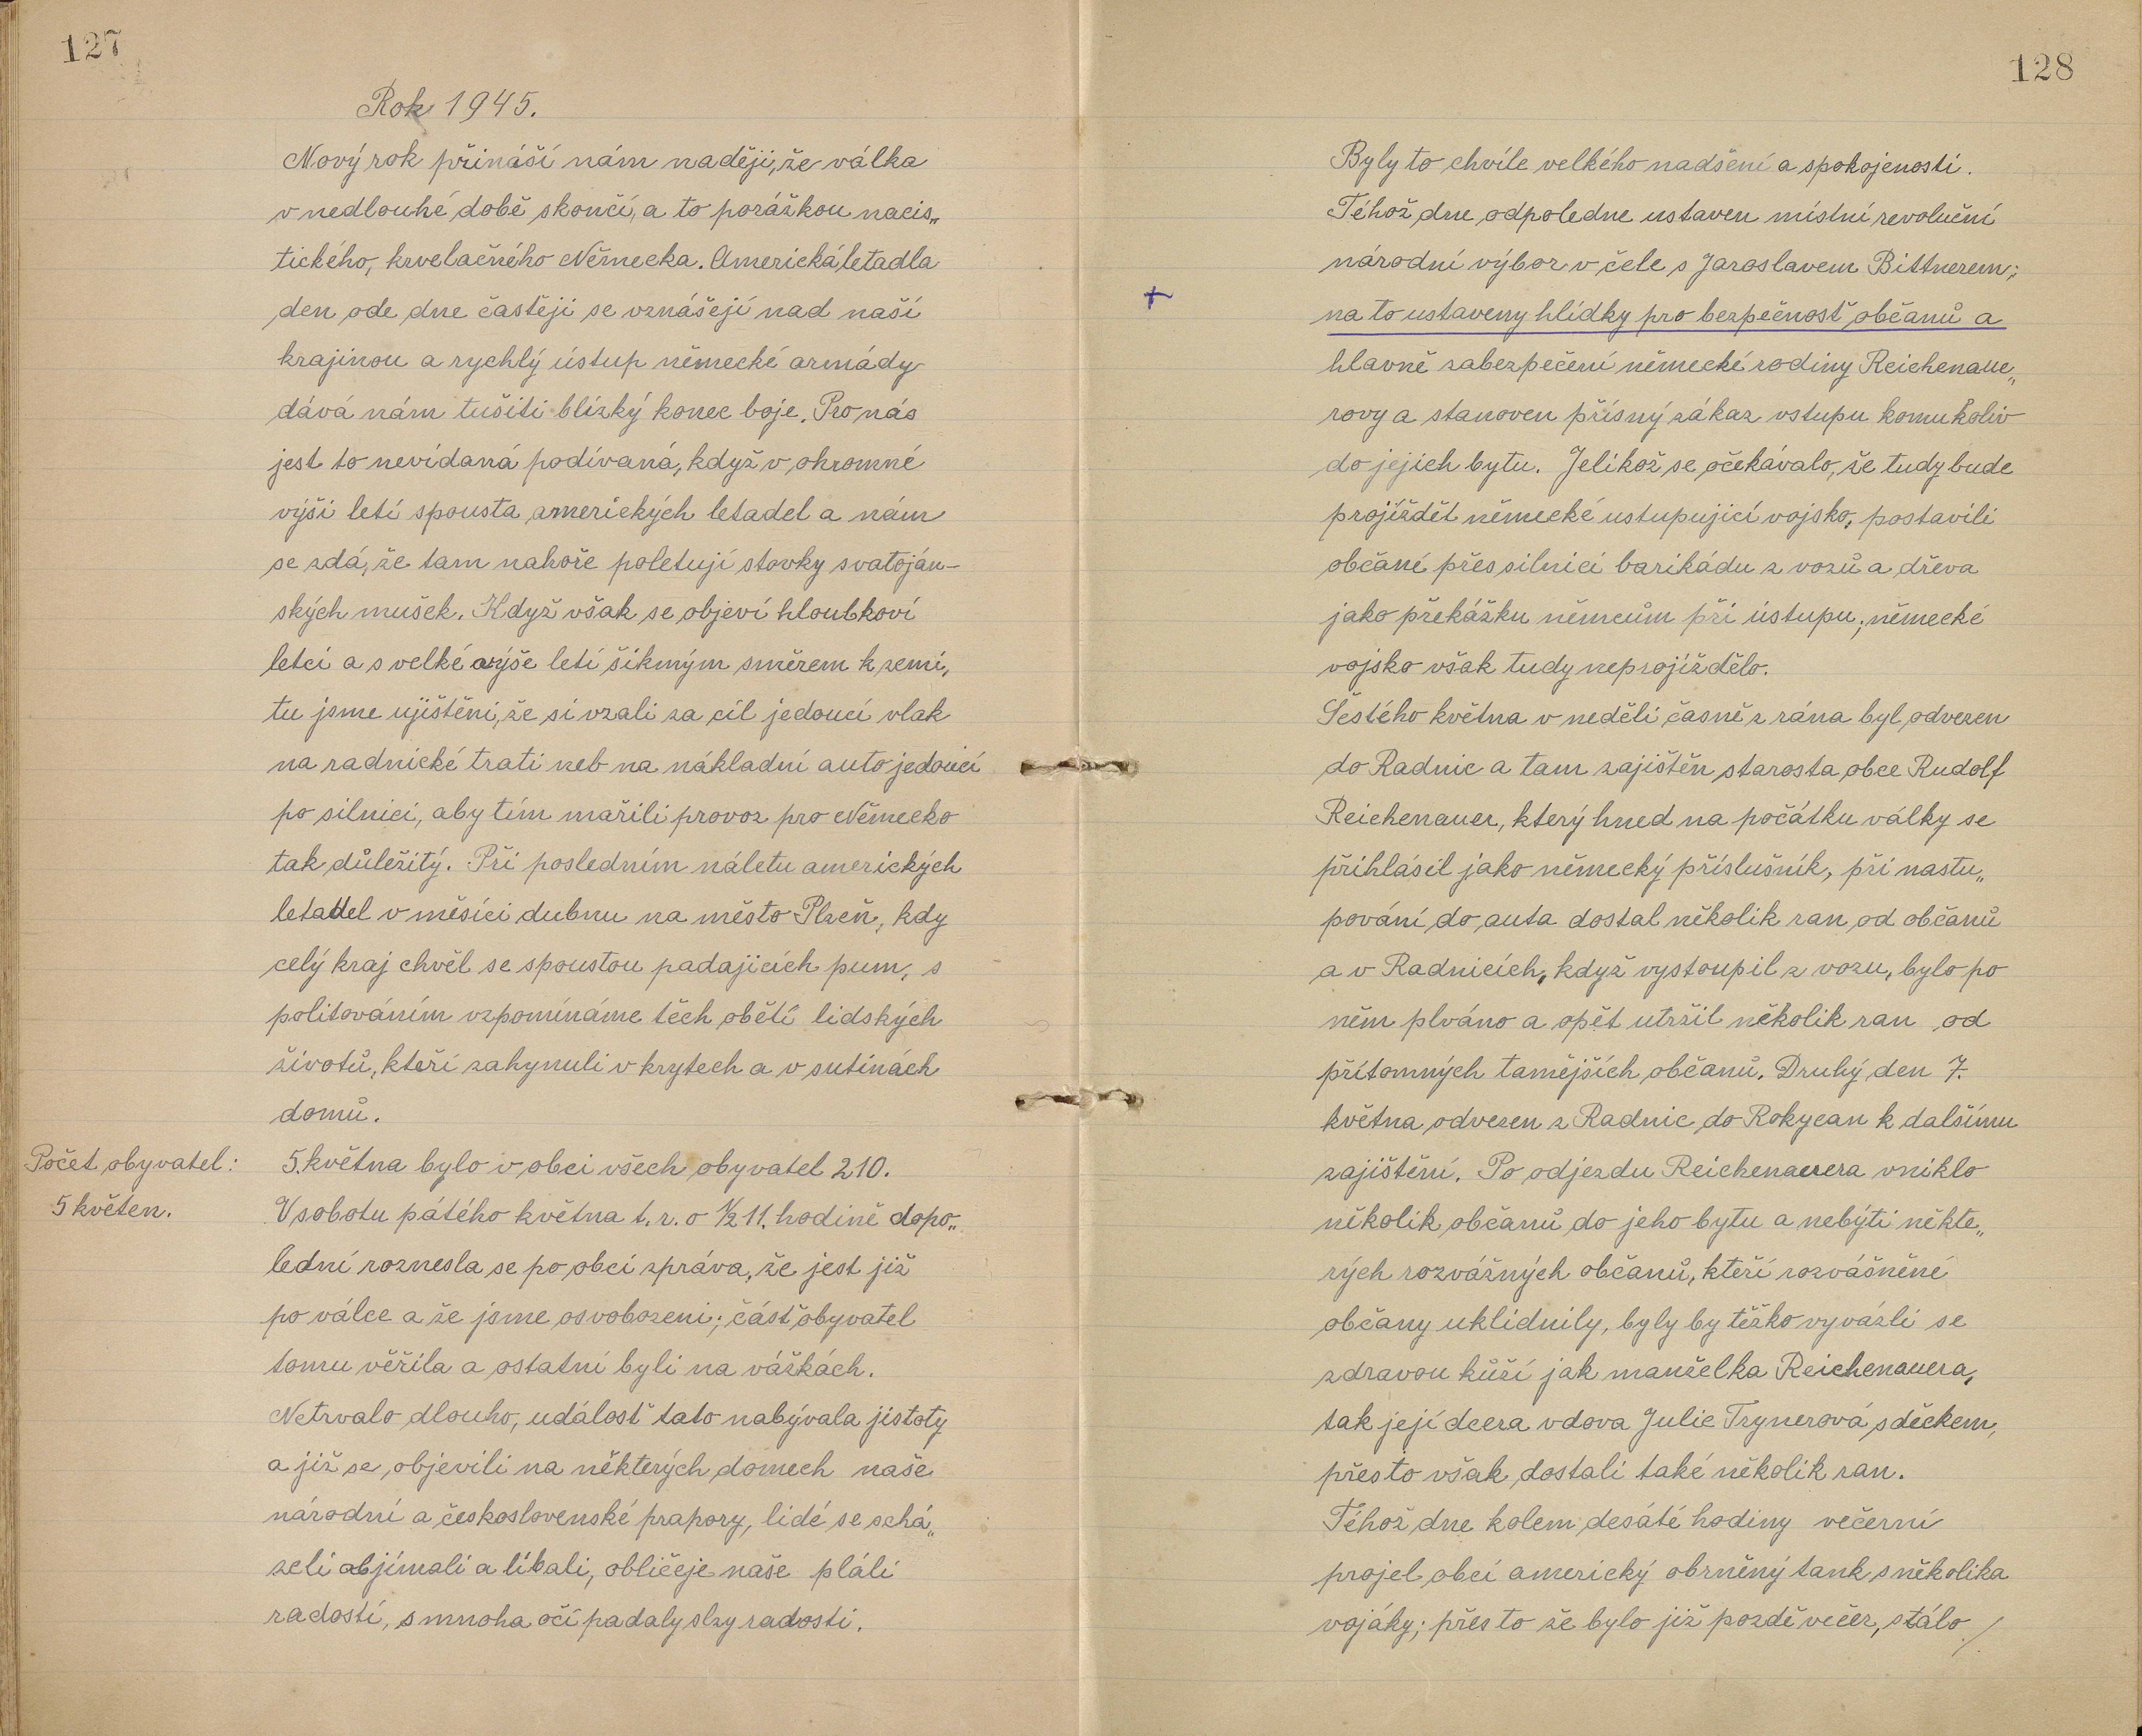 127
Rok 1945.
Nový rok přináší nám naději, že válka
v nedlouhé době skončí, a to porážkou nacis„
tického, krvelačného Německa. Americká letadla
den ode dne častěji se vznášejí nad naší
krajinou a rychlý ústup německé armády
dává nám tušiti blízký konec boje. Pro nás
jest to nevídaná podívaná, když v ohromné
výši letí spousta amerických letadel a nám
se zdá, že tam nahoře poletují stovky svatoján-
ských mušek. Když však se objeví hloubkoví
letci a s velké výše letí šikmým směrem k zemi,
tu jsme ujištěni, že si vzali za cíl jedoucí vlak
na radnické trati neb na nákladní auto jedoucí
po silnici, aby tím mařili provoz pro Německo
tak důležitý. Při posledním náletu amerických
letadel v měsíci dubnu na město Plzeň, kdy
celý kraj chvěl se spoustou padajících pum, s
politováním vzpomínáme těch obětí lidských
životů, kteří zahynuli v krytech a v sutinách
domů.
Počet obyvatel: 5. května bylo v obci všech obyvatel 210.
5 květen. V sobotu pátého května t. r. o ½ 11. hodině dopo„
lední roznesla se po obci zpráva, že jest již
po válce a že jsme osvobozeni; část obyvatel
tomu věřila a ostatní byli na vážkách.
Netrvalo dlouho, událost tato nabývala jistoty
a již se objevili na některých domech naše
národní a československé prapory, lidé se schá„
zeli objímali a líbali, obličeje naše pláli
radostí, s mnoha očí padaly slzy radosti.
128
Byly to chvíle velkého nadšení a spokojenosti.
Téhož dne odpoledne ustaven místní revoluční
národní výbor v čele s Jaroslavem Bittnerem;
+ na to ustaveny hlídky pro bezpečnost občanů a
hlavně zabezpečení německé rodiny Reichenaue„
rovy a stanoven přísný zákaz vstupu komukoliv
do jejich bytu. Jelikož se očekávalo, že tudy bude
projíždět německé ustupující vojsko, postavili
občané přes silnici barikádu z vozů a dřeva
jako překážku němcům při ústupu; německé
vojsko však tudy neprojíždělo.
Šestého května v neděli časně z rána byl odvezen
do Radnic a tam zajištěn starosta obce Rudolf
Reichenauer, který hned na počátku války se
přihlásil jako německý příslušník, při nastu„
pování do auta dostal několik ran od občanů
a v Radnicích, když vystoupil z vozu, bylo po
něm plváno a opět utržil několik ran od
přítomných tamějších občanů. Druhý den 7.
května odvezen z Radnic do Rokycan k dalšímu
zajištění. Po odjezdu Reichenauera vniklo
několik občanů do jeho bytu a nebýti někte„
rých rozvážných občanů, kteří rozvášněné
občany uklidnily, byly by těžko vyvázli se
zdravou kůží jak manželka Reichenauera,
tak její dcera vdova Julie Trynerová s děckem,
přes to však dostali také několik ran.
Téhož dne kolem desáté hodiny večerní
projel obcí americký obrněný tank s několika
vojáky; přes to že bylo již pozdě večer, stálo /